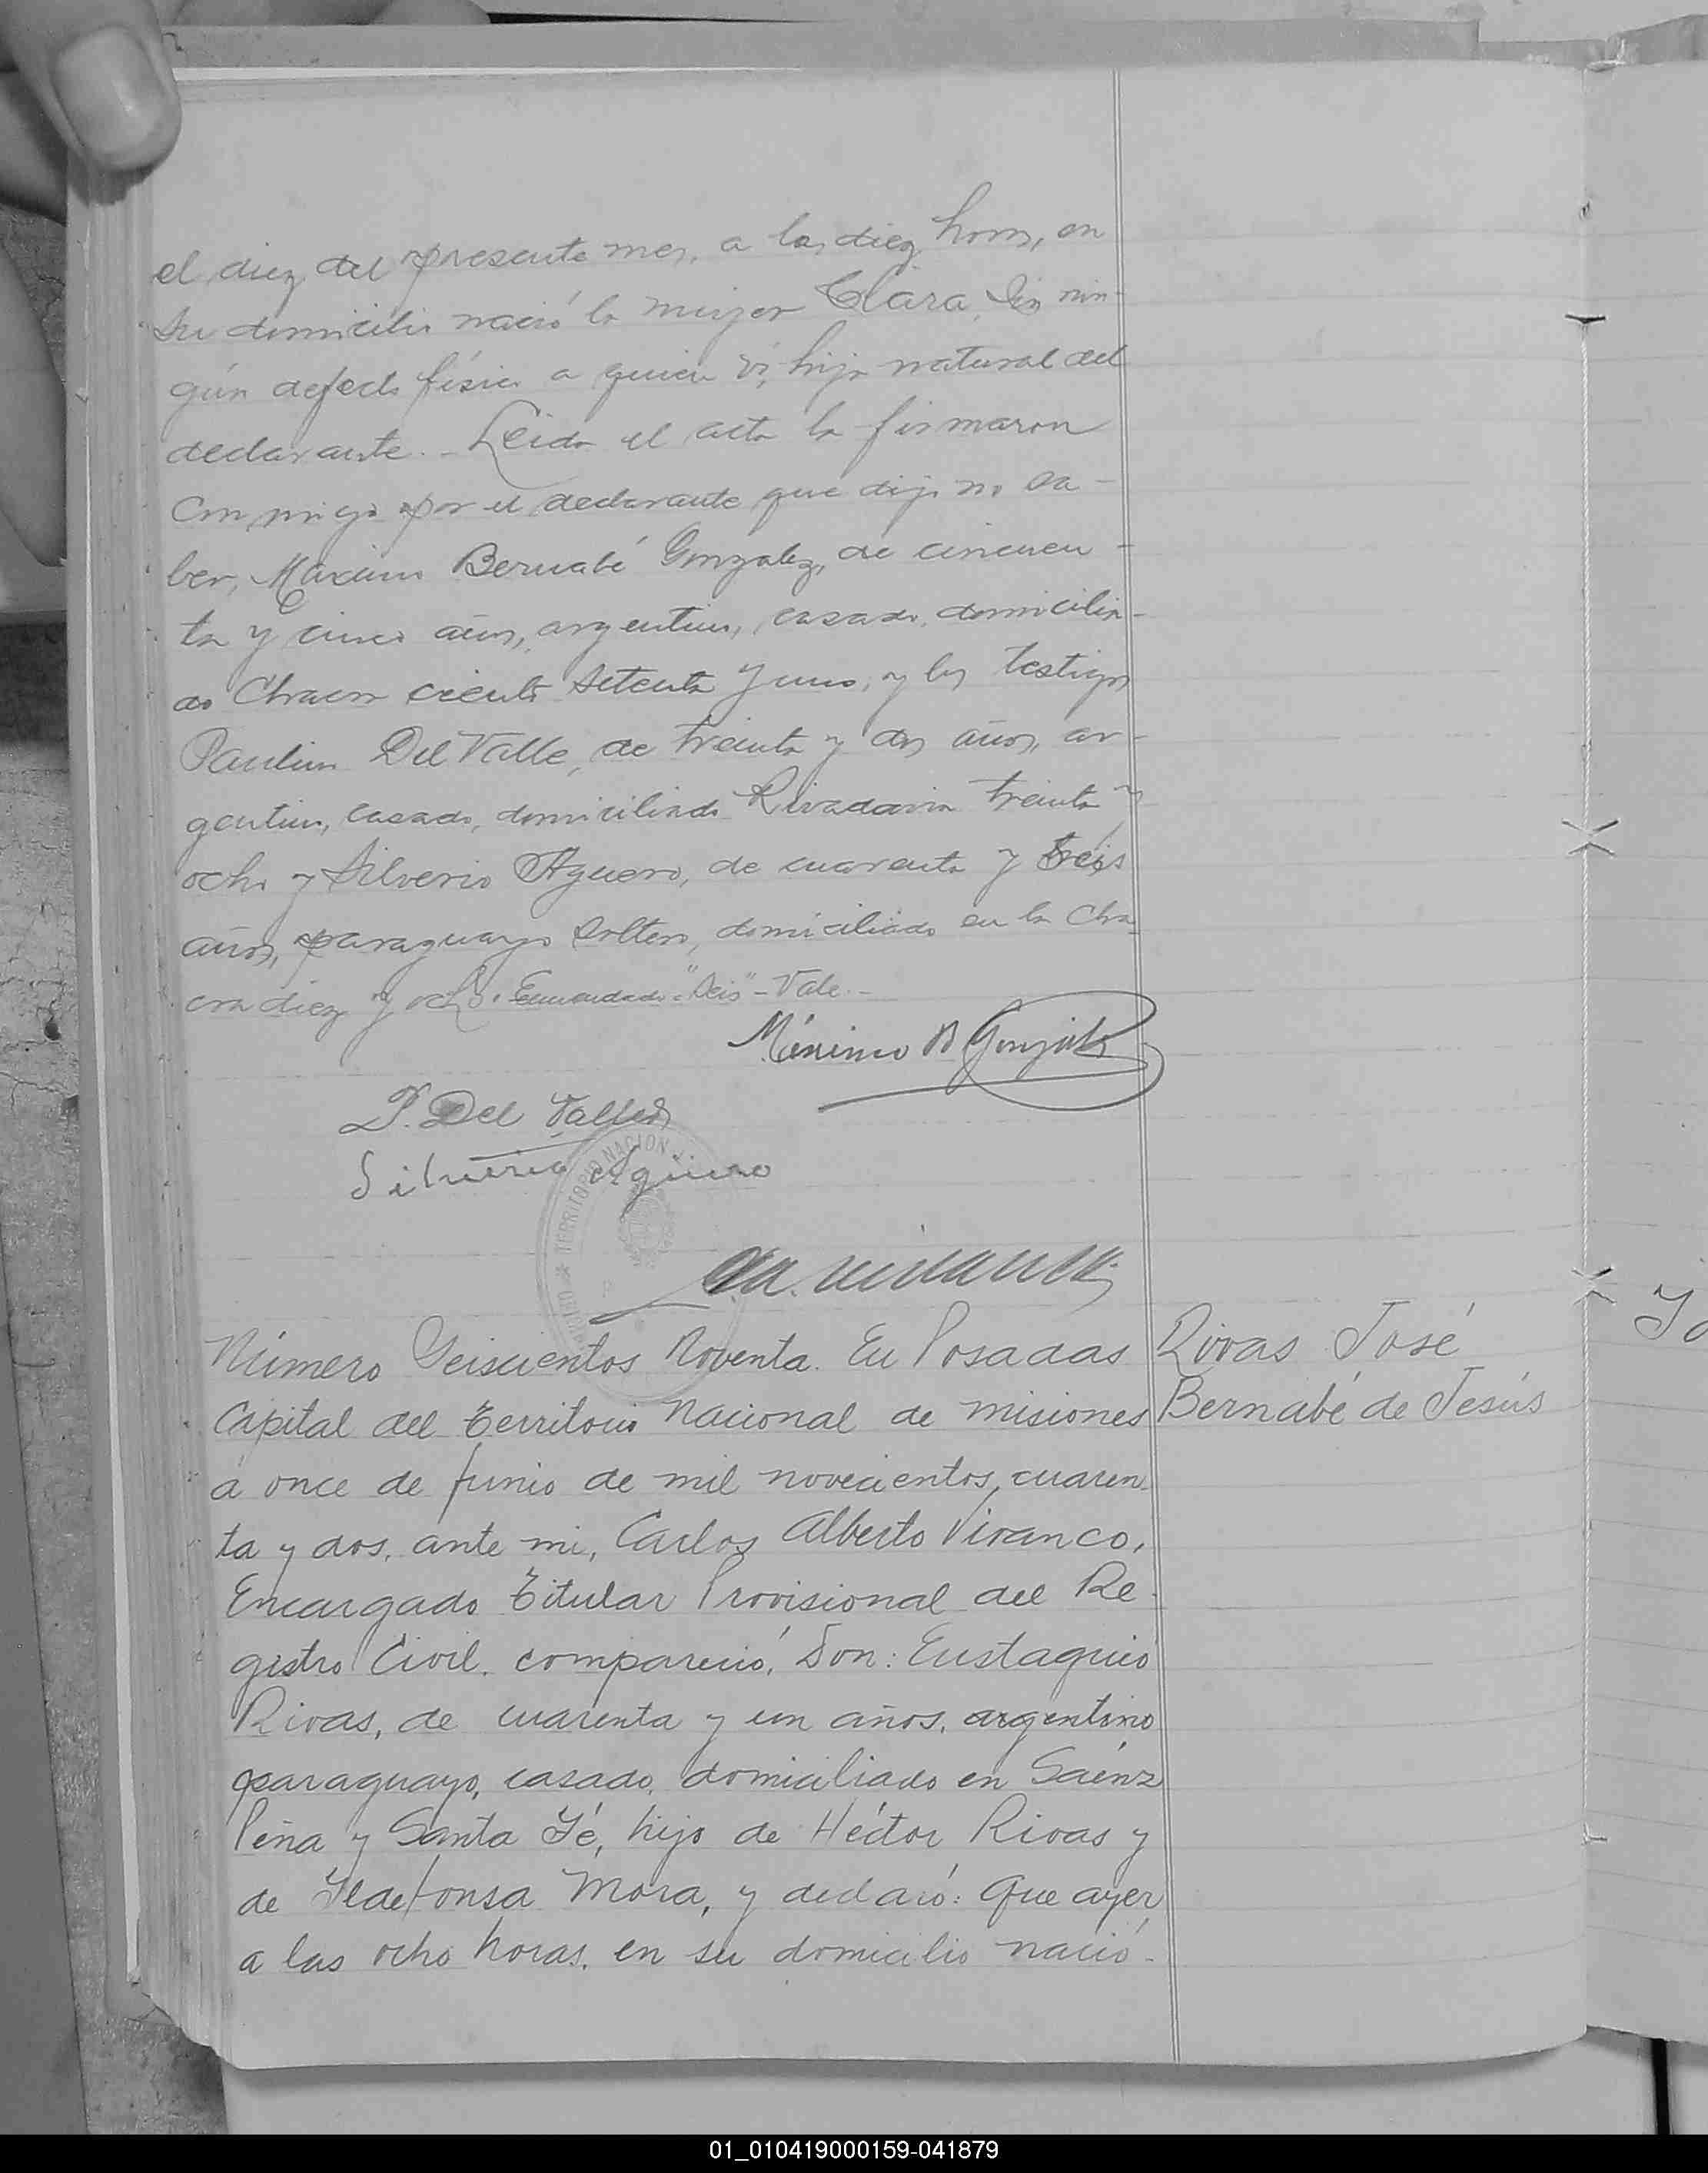 el diez del presente mes, a las diez horas, en
su domicilio nació la mujer Clara, sin nin-
gún defecto físico a quien vi, hija natural del
declarante.- Leida el acta la firmaron
conmigo por el declarante que dijo no sa-
ber, Máximo Bernabé Gonzalez, de cincuen-
ta y cinco años, argentino, casado, domicilia-
do Chacra ciento setenta y uno, y los testigos
Paulino Del Valle, de treinta y dos años, ar-
gentino, casado, domiciliado Rivadavia treinta y
ocho y Silverio Aguero, de cuarenta y seis
años, paraguayo soltero, domiciliado en la Cha-
cra diez y ocho. Enmendado-"seis"-Vale.-
Máximo B Gonzalez
P. Del Valle
Silverio Agüero
TERRITORIO NACION
Número Seiscientos Noventa. En Posadas
Capital del Territorio Nacional de misiones
a once de junio de mil novecientos cuaren-
ta y dos, ante mi, Carlos Alberto Vivanco,
Encargado Titular Provisional del Re-
gistro Civil. compareció, Don: Eustaquio
Rivas, de cuarenta y un años, argentino
paraguayo, casado, domiciliado en Saénz
Peña y Santa Fé, hijo de Héctor Rivas y
de Ildefonsa Mora, y declaró: Que ayer
a las ocho horas, en su domicilio nació-
Rivas José
Bernabé de Jesús
01_010419000159-041879